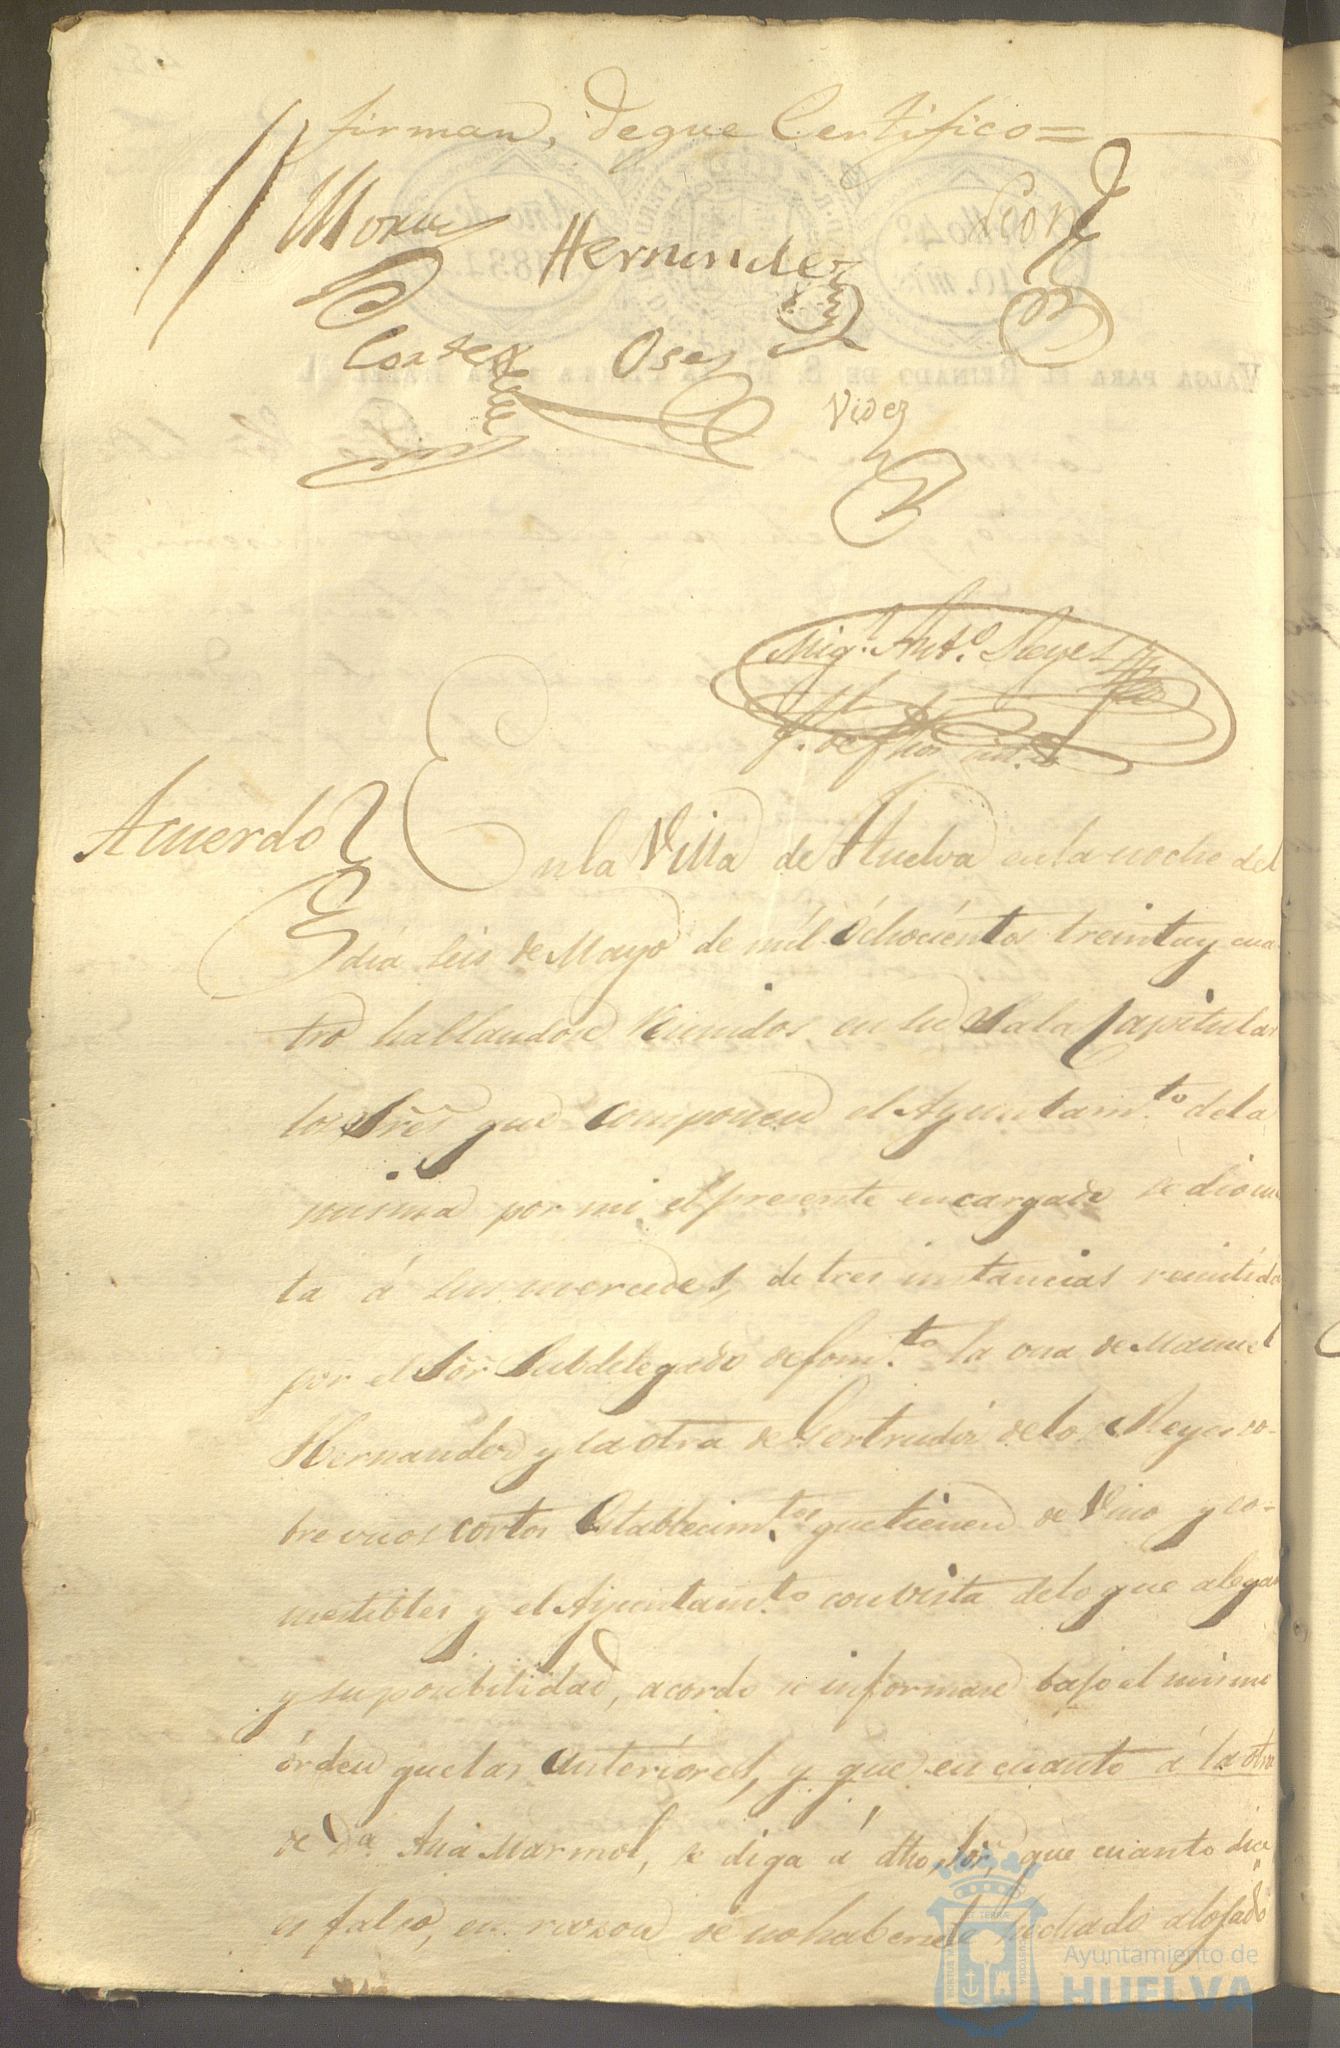 firman, de que Certifico=
Mora
Hernandez
Cortes Oses
Videz
Mig.l Ant.o Reyes
Acuerdo
En la Villa de Huelva en la noche del
día seis de Mayo de mil ôchocientos treinta y cua-
tro hallandose reunidos, en su Sala Capitular
los Sres que componen el Ayuntam.to de la
misma por mi el presente encargado se dio cuen
ta á sus mercedes, de tres instancias remitida
por el Sor Subdelegado de fom.to la una de Manuel
Hernandez y la otra de Gertrudis de los Reyes so-
bre unos cortos Establecim.tos que tienen de Vino y co-
mestibles y el Ayuntam.to con vista de lo que alegan
y su posibilidad, acordo se informase bajo el mismo
órden que las anteriores, y que en cuanto á la otra
de Da. Ana Marmol, se diga á dho, Sor, que cuanto dice
es falso, en razon de no haberse alojado
Ayuntamiento de
HUELVA